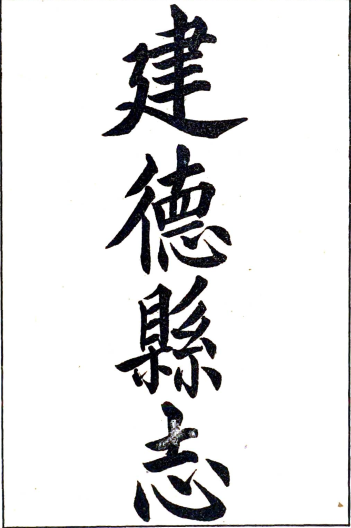 建德縣志